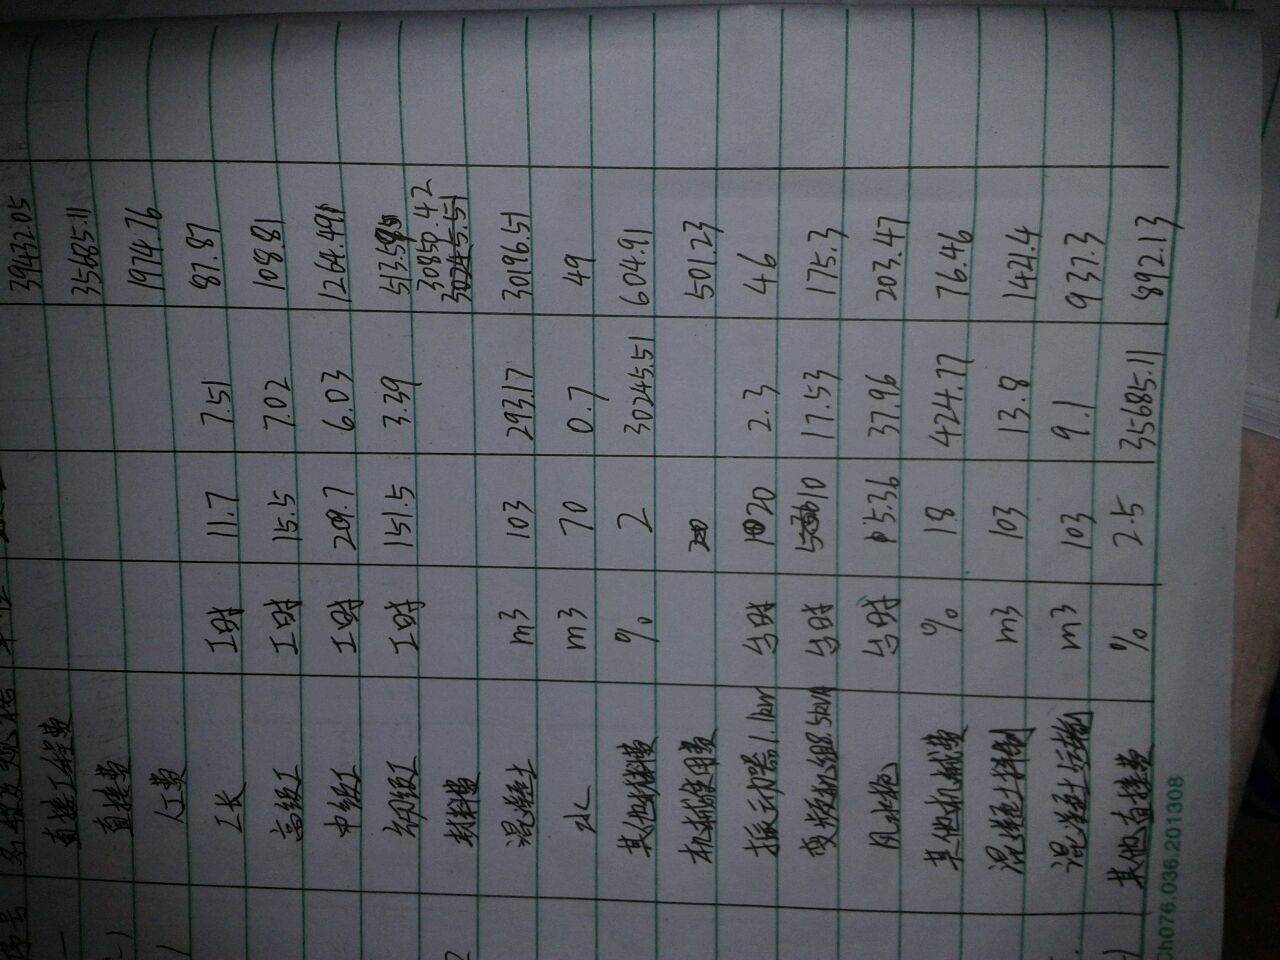 序号 名称及规格 单位
一 直接工程费 39432.05
直接费 35685.11
人工费 1974.76
工长 工时 11.7 7.51 87.87
高级工 工时 15.5 7.02 108.81
中级工 工时 209.7 6.03 1264.49
初级工 工时 151.5 3.39 513.59
2 材料费 30850.42
混凝土 m3 103 293.17 30196.51
水 m3 70 0.7 49
其他材料费 % 2 30245.51 604.91
机械使用费 501.23
振动器1.1kw 台时 20 2.3 46
变频机组8.5kVA 台时 10 17.53 175.3
风水枪 台时 5.36 37.96 203.47
其他机械费 % 18 424.77 76.46
混凝土拌制 m3 103 13.8 1421.4
混凝土运输 m3 103 9.1 937.3
其他直接费 % 2.5 35685.11 892.13
Ch076.036.201308